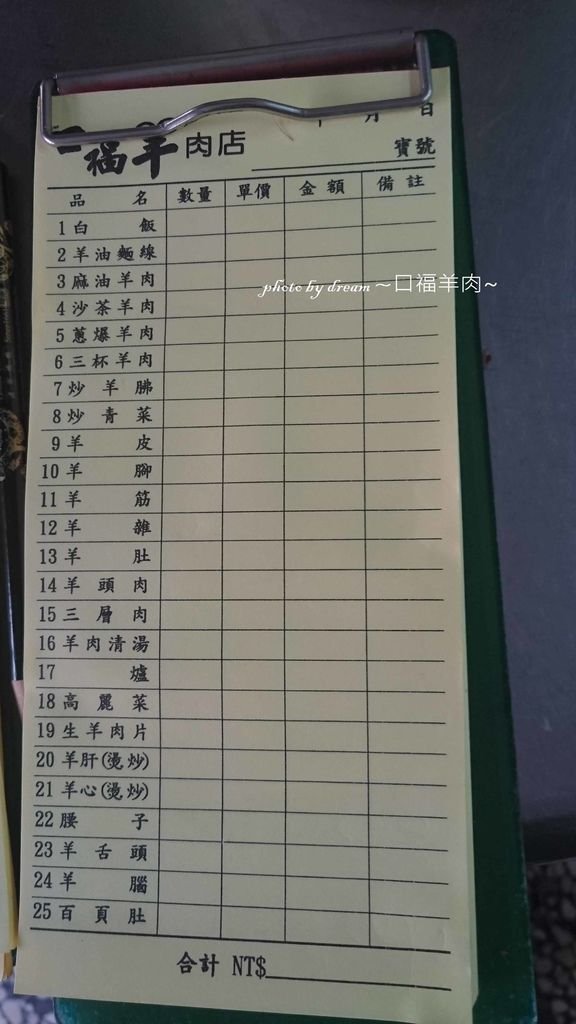 年 月 日
口福羊肉店
寶號
品名 數量 單價 金額 備註
1 白飯
2 羊油麵線
3 麻油羊肉
photo by dream ~口福羊肉~
4 沙茶羊肉
5 蔥爆羊肉
6 三杯羊肉
7 炒羊胇
8 炒青菜
9 羊皮
10 羊腳
11 羊筋
12 羊雜
13 羊肚
14 羊頭肉
15 三層肉
16 羊肉清湯
17 爐
18 高麗菜
19 生羊肉片
20 羊肝(燙炒)
21 羊心(燙炒)
22 腰子
23 羊舌頭
24 羊腦
25 百頁肚
合計 NT$